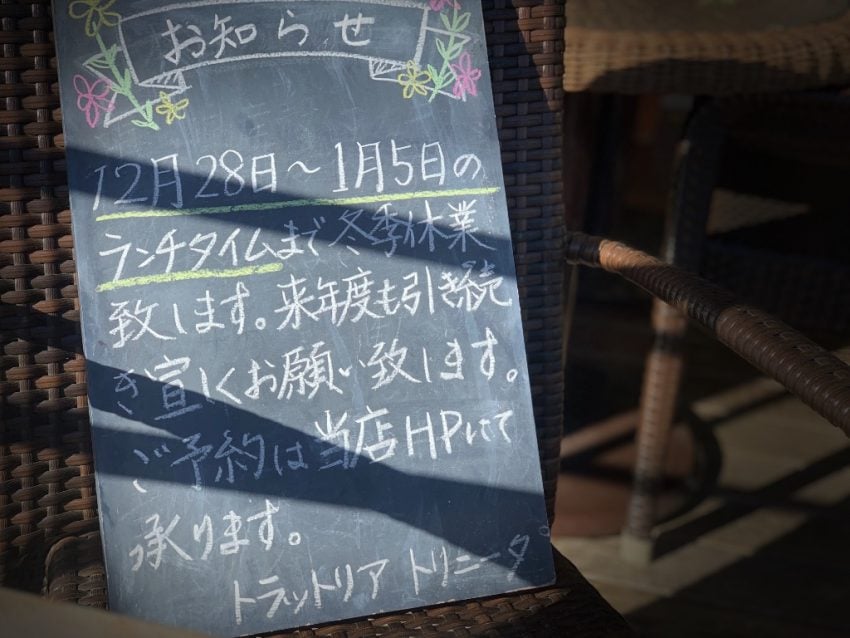 お知らせ
12月28日～1月5日の
ランチタイムまで冬季休業
致します。来年度も引き続
き宜しくお願い致します。
ご予約は当店HPにて
承ります。
トラットリア トリニータ